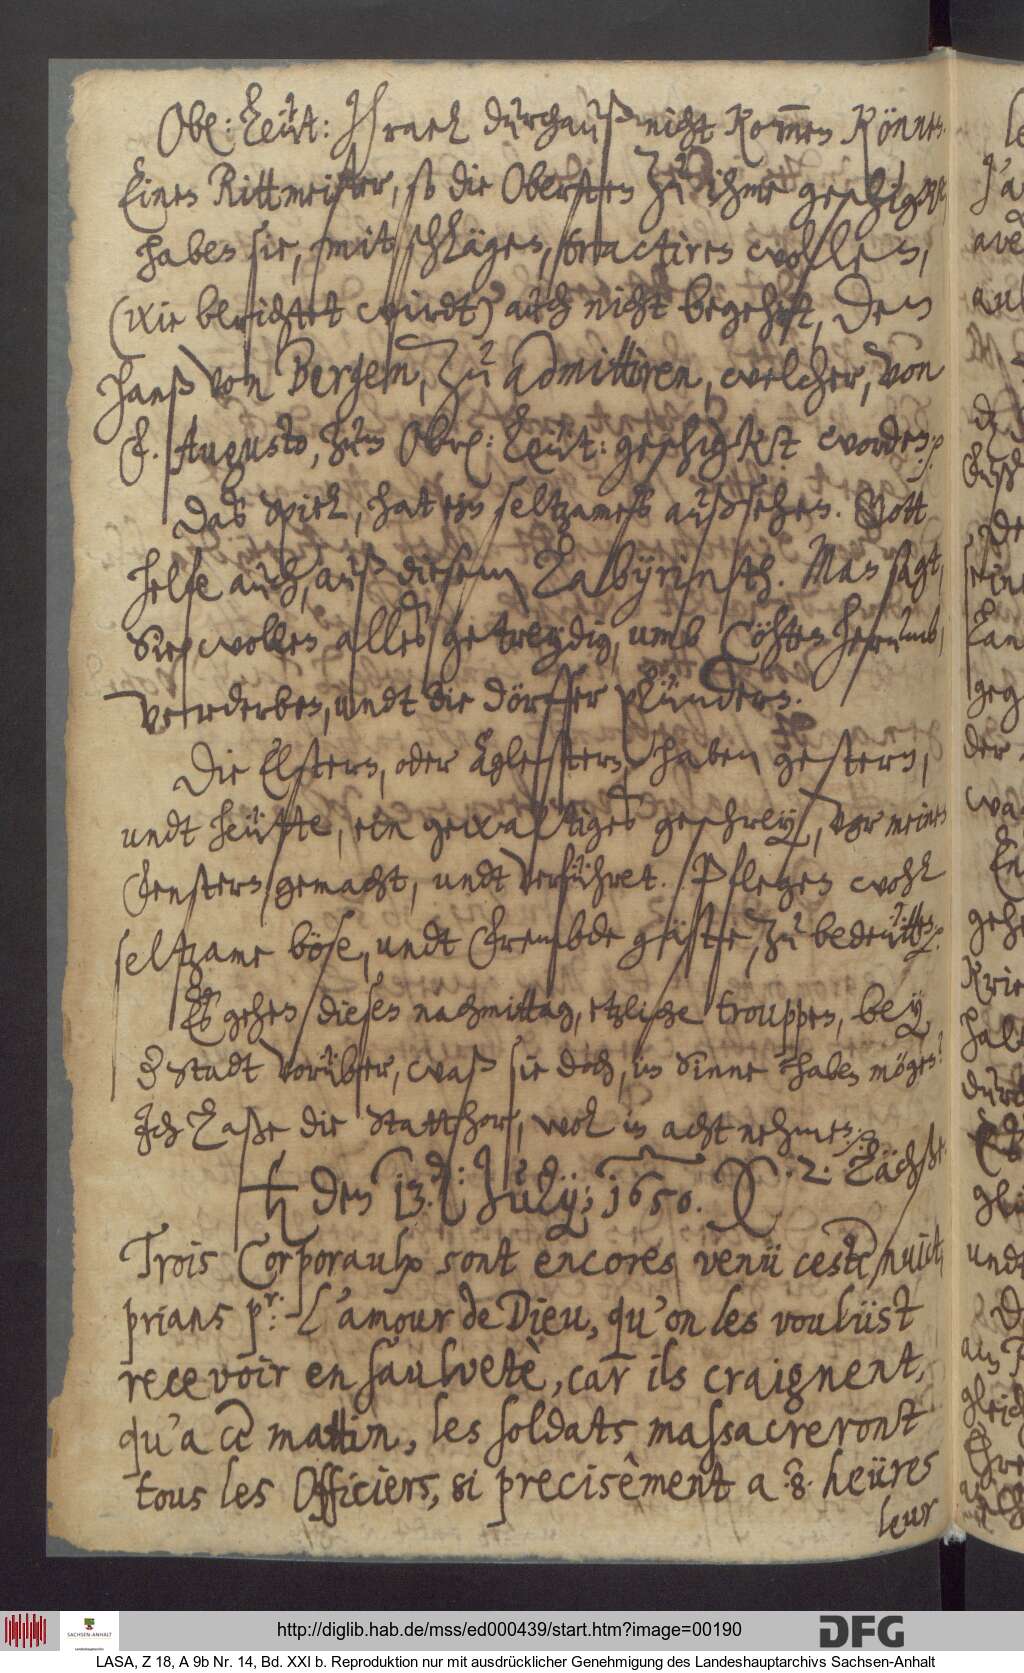 Ob: Leüt: Israel durchauß nicht kommen können.
Einen Rittmeister, so die Obersten zu ihme geschigkt
haben sie, mit schlägen, tractiren wollen,
(wie berichtet wirdt) auch nicht begehrt, den
Hanß von Bergen, zu admittiren, welcher, von
F. Augusto, zum Obr: Leüt: geschigkt worden.
Das Spiel, hat ein seltzames außsehen. Gott
helfe auch, auß diesem Labyrinth. Man sagt,
Sie wollen alles getreydig, umb Cöhten herumb,
verderben, undt die dörffer plündern.
Die Elstern, oder Äglestern, haben gestern,
undt heütte, ein gewaltiges geschrey, vor meinen
Fenstern, gemacht, undt verführet. Pflegen wohl
seltzame böse, undt Frembde gäste, zu bedeütten.
Es gehen diesen nachmittag, etzliche trouppen, bey
d Stadt vorüber, waß sie doch, im Sinne haben mögen?
Ich laße die Stadtthor, wol in acht nehmen.
♄ den 13. Julij; 1650.
Trois Corporaulx sont encores venü ceste nuict,
prians pr: L'amour de Dieu, qu'on les voulüst
recevoir en saulvetè, car ils craignent,
qu'a ce mattin, les soldats massacreront
tous les Officiers, si precisèment a .8. heüres
leur
http://diglib.hab.de/mss/ed000439/start.htm?image=00190
SACHSEN-ANHALT
DFG
LASA, Z 18, A 9b Nr. 14, Bd. XXI b. Reproduktion nur mit ausdrücklicher Genehmigung des Landeshauptarchivs Sachsen-Anhalt